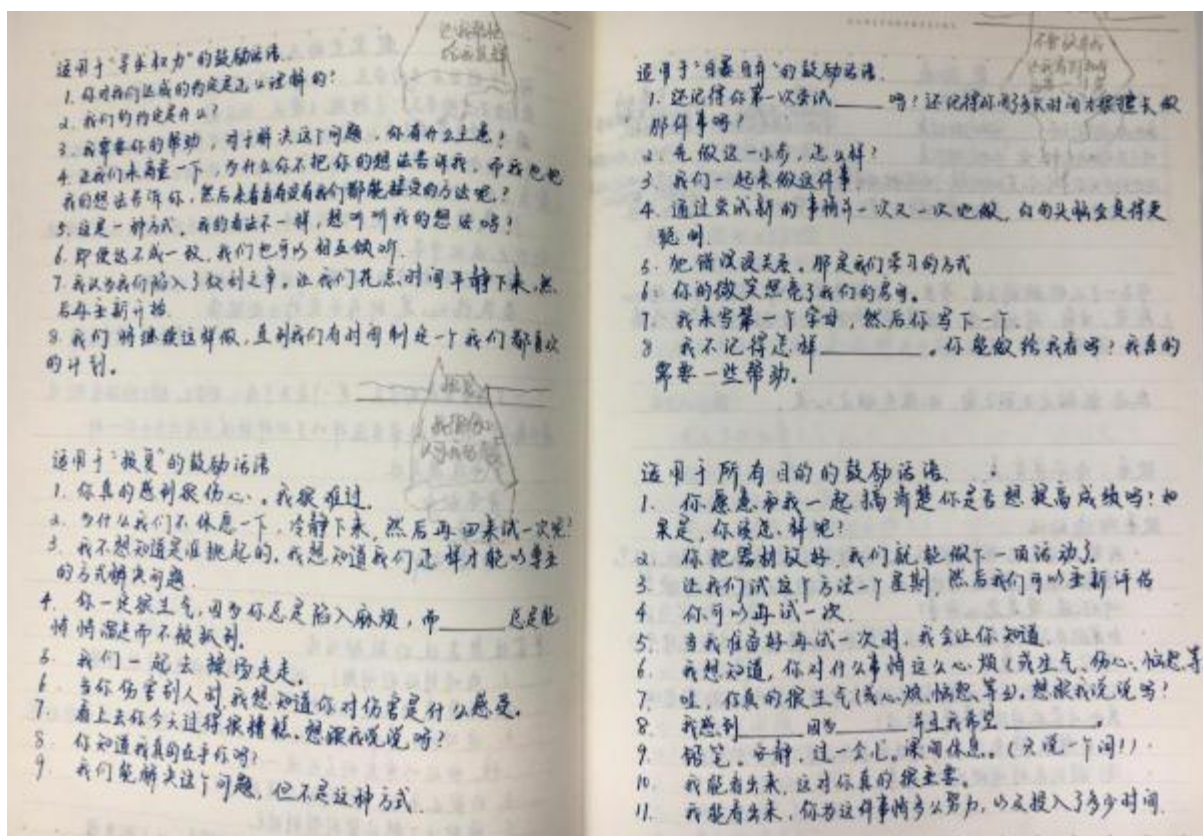 适用于"寻求权力"的鼓励话语.
1. 你对我们达成的约定是怎么理解的?
2. 我们的约定是什么?
3. 我需要你的帮助,对于解决这个问题,你有什么主意?
4. 让我们来商量一下,为什么你不把你的想法告诉我,而我也把
我的想法告诉你,然后来看看有没有我们都能接受的方法呢?
5. 这是一种方式,我的看法不一样,想听听我的想法吗?
6. 即使达不成一致,我们也可以相互倾听.
7. 我认为我们陷入了权利之争。让我们花点时间平静下来,然
后再重新开始.
8. 我们将继续这样做,直到我们有时间制定一个我们都喜欢
的计划。
报复
适用于"报复"的鼓励话语
1. 你真的感到很伤心。我很难过.
2. 为什么我们不休息一下,冷静下来,然后再回来试一次呢?
3. 我不想知道是谁挑起的,我想知道我们怎样才能以尊重
的方式解决问题.
4. 你一定很生气,因为你总是陷入麻烦,而______总是能
悄悄溜走而不被抓到。
5. 我们一起去操场走走。
6. 当你伤害别人时,我想知道你对伤害是什么感受。
7. 看上去你今天过得很糟糕。想跟我说说吗?
8. 你知道我真的在乎你吗?
9. 我们能解决这个问题,但不是这种方式.
适用于"自暴自弃"的鼓励话语.
1. 还记得你第一次尝试_____吗?还记得你用了多长时间才擅长做
那件事吗?
2. 先做这一小步,怎么样?
3. 我们一起来做这件事
4. 通过尝试新的事情并一次又一次地做,你的头脑会变得更
聪明.
5. 犯错误没关系。那是我们学习的方式
6. 你的微笑照亮了我们的房间。
7. 我来写第一个字母,然后你写下一个.
8 我不记得怎样________。你能做给我看吗?我真的
需要一些帮助。
适用于所有目的的鼓励话语.
1. 你愿意和我一起搞清楚你是否想提高成绩吗?如
果是,你该怎样呢?
2. 你把器材放好,我们就能做下一项活动了.
3. 让我们试这个方法一个星期,然后我们可以重新评估
4. 你可以再试一次.
5. 当我准备好再试一次时,我会让你知道.
6. 我想知道,你对什么事情这么心烦(或生气、伤心、恼怒,等
7. 哇,你真的很生气(或心烦,恼怒,等等),想跟我说说吗?
8. 我感到______因为______并且我希望________.
9. 铅笔。安静。过一会儿。课间休息。(只说一个词!).
10. 我能看出来,这对你真的很重要。
11. 我能看出来,你为这件事情多么努力,以及投入了多少时间.